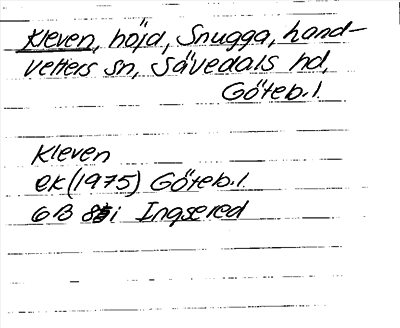 Kleven, höjd, Snugga, Land-
vetters sn, Sävedals hd,
Göteb.l.
Kleven
ek (1975) Göteb.l.
6B 8i Ingsered